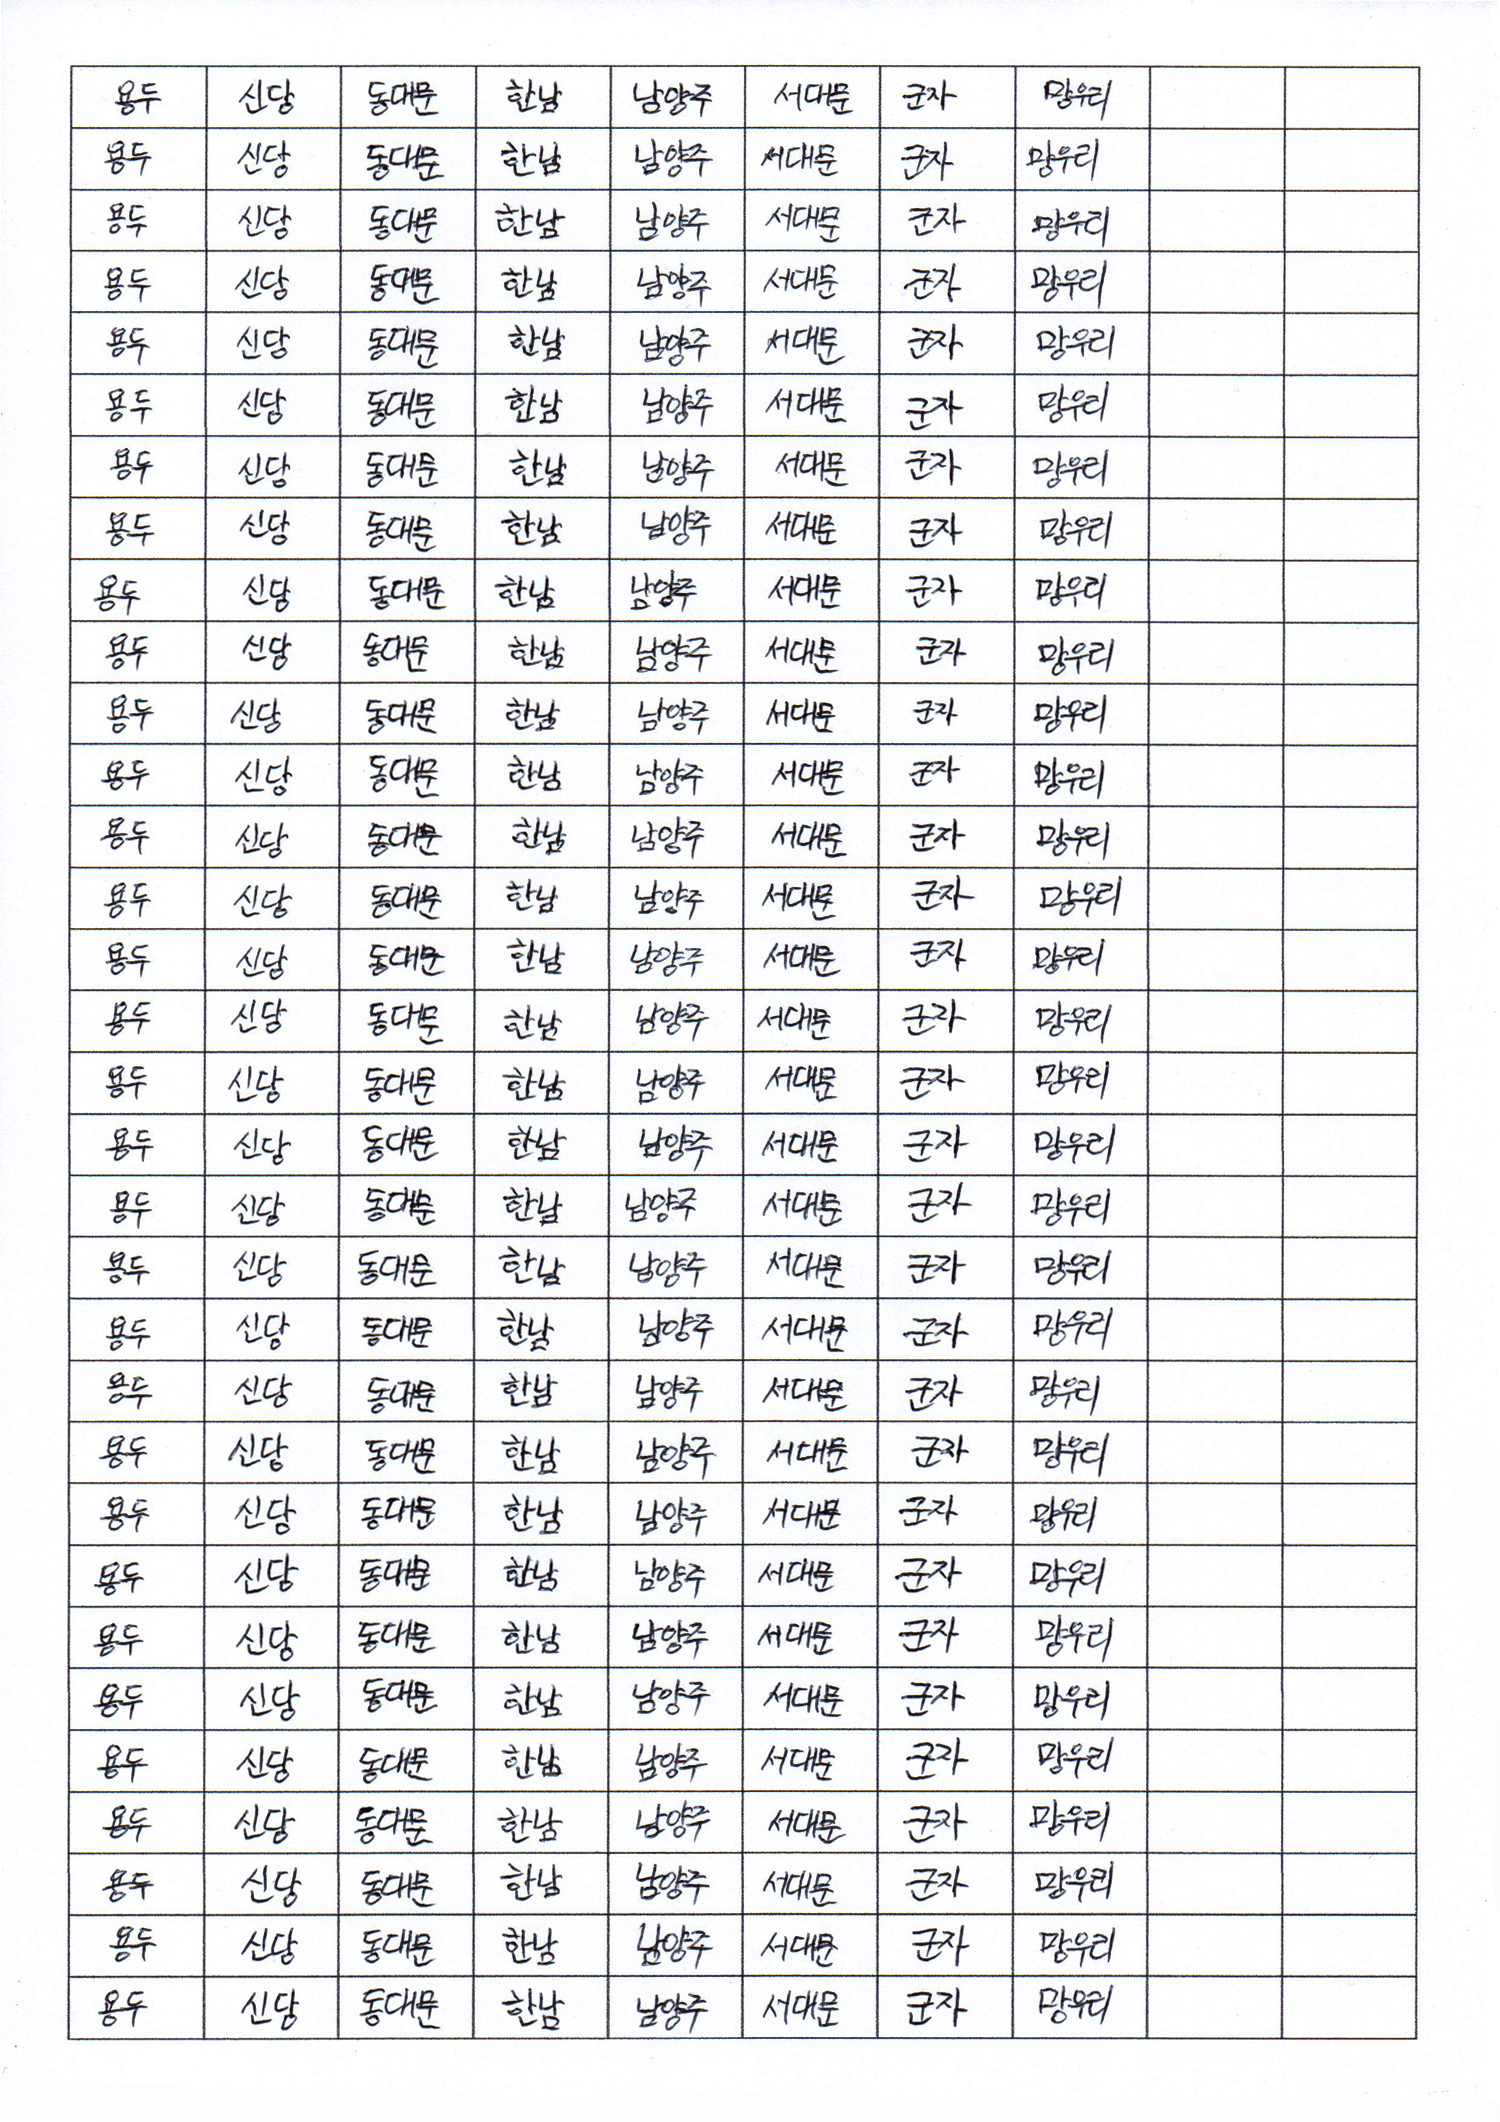 용두 신당 동대문 한남 남양주 서대문 군자 망우리
용두 신당 동대문 한남 남양주 서대문 군자 망우리
용두 신당 동대문 한남 남양주 서대문 군자 망우리
용두 신당 동대문 한남 남양주 서대문 군자 망우리
용두 신당 동대문 한남 남양주 서대문 군자 망우리
용두 신담 동대문 한남 남양주 서대문 군자 망우리
용두 신당 동대문 한남 남양주 서대문 군자 망우리
용두 신당 동대문 한남 남양주 서대문 군자 망우리
용두 신당 동대문 한남 남양주 서대문 군자 망우리
용두 신당 동대문 한남 남양주 서대문 군자 망우리
용두 신당 동대문 한남 남양주 서대문 군자 망우리
용두 신당 동대문 한남 남양주 서대문 군자 망우리
용두 신당 동대문 한남 남양주 서대문 군자 망우리
용두 신당 동대문 한남 남양주 서대문 군자 망우리
용두 신당 동대문 한남 남양주 서대문 군자 망우리
용두 신당 동대문 한남 남양주 서대문 군자 망우리
용두 신당 동대문 한남 남양주 서대문 군자 망우리
용두 신당 동대문 한남 남양주 서대문 군자 망우리
용두 신당 동대문 한남 남양주 서대문 군자 망우리
용두 신당 동대문 한남 남양주 서대문 군자 망우리
용두 신당 동대문 한남 남양주 서대문 군자 망우리
용두 신당 동대문 한남 남양주 서대문 군자 망우리
용두 신당 동대문 한남 남양주 서대문 군자 망우리
용두 신당 동대문 한남 남양주 서대문 군자 망우리
용두 신당 동대문 한남 남양주 서대문 군자 망우리
용두 신당 동대문 한남 남양주 서대문 군자 망우리
용두 신당 동대문 한남 남양주 서대문 군자 망우리
용두 신당 동대문 한남 남양주 서대문 군자 망우리
용두 신당 동대문 한남 남양주 서대문 군자 망우리
용두 신당 동대문 한남 남양주 서대문 군자 망우리
용두 신당 동대문 한남 남양주 서대문 군자 망우리
용두 신당 동대문 한남 남양주 서대문 군자 망우리